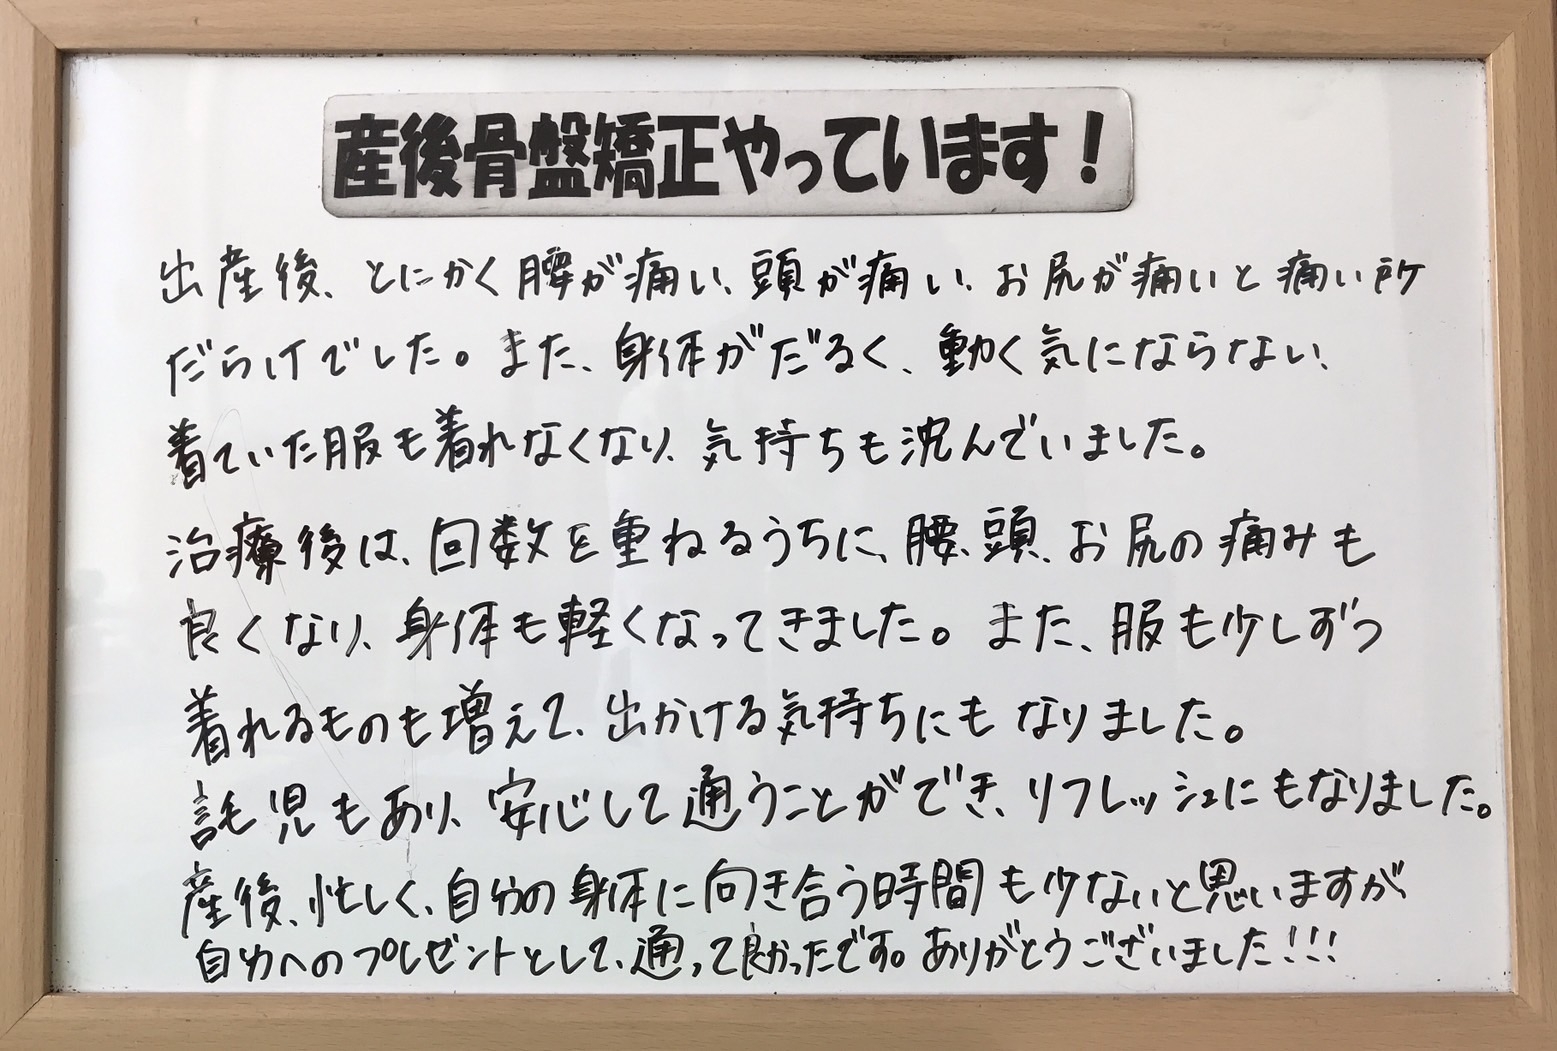 産後骨盤矯正やっています！
出産後、とにかく腰が痛い、頭が痛い、お尻が痛いと痛い所
だらけでした。また、身体がだるく、動く気にならない、
着ていた服も着れなくなり、気持ちも沈んでいました。
治療後は、回数を重ねるうちに、腰、頭、お尻の痛みも
良くなり、身体も軽くなってきました。また、服も少しずつ
着れるものも増えて、出かける気持ちにもなりました。
託児もあり、安心して通うことができ、リフレッシュにもなりました。
産後、忙しく、自分の身体に向き合う時間も少ないと思いますが、
自分へのプレゼントとして、通って良かったです。ありがとうございました!!!